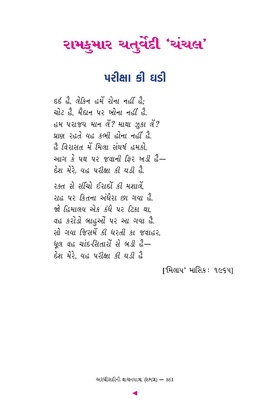 રામકુમાર ચતુર્વેદી 'ચંચલ'
પરીક્ષા કી ઘડી
દર્દ હૈ, લેકિન હમેં રોના નહીં હૈ;
ચોટ હૈ, મૈદાન પર ખોના નહીં હૈ.
હમ પરાજય માન લેં? માથા ઝુકા લેં?
પ્રાણ રહતે વહ કભી હોના નહીં હૈ.
હૈ વિરાસત મેં મિલા સંઘર્ષ હમકો,
આગ કે પથ પર જવાની ફિર બઢી હૈ—
દેશ મેરે, યહ પરીક્ષા કી ઘડી હૈ.
રક્ત સે સીંચો ઇરાદોં કી મશાલેં,
રાહ પર કિતના અંધેરા છા ગયા હૈ.
જો હિમાલય એક કંધે પર ટિકા થા,
વહ કરોડોં બાહુઓં પર આ ગયા હૈ.
સો ગયા જિસમેં કી ધરતી કા જવાહર,
ધૂલ વહ ચાંદ-સિતારોં સે બડી હૈ—
દેશ મેરે, યહ પરીક્ષા કી ઘડી હૈ
['મિલાપ' માસિક : ૧૯૬૫]